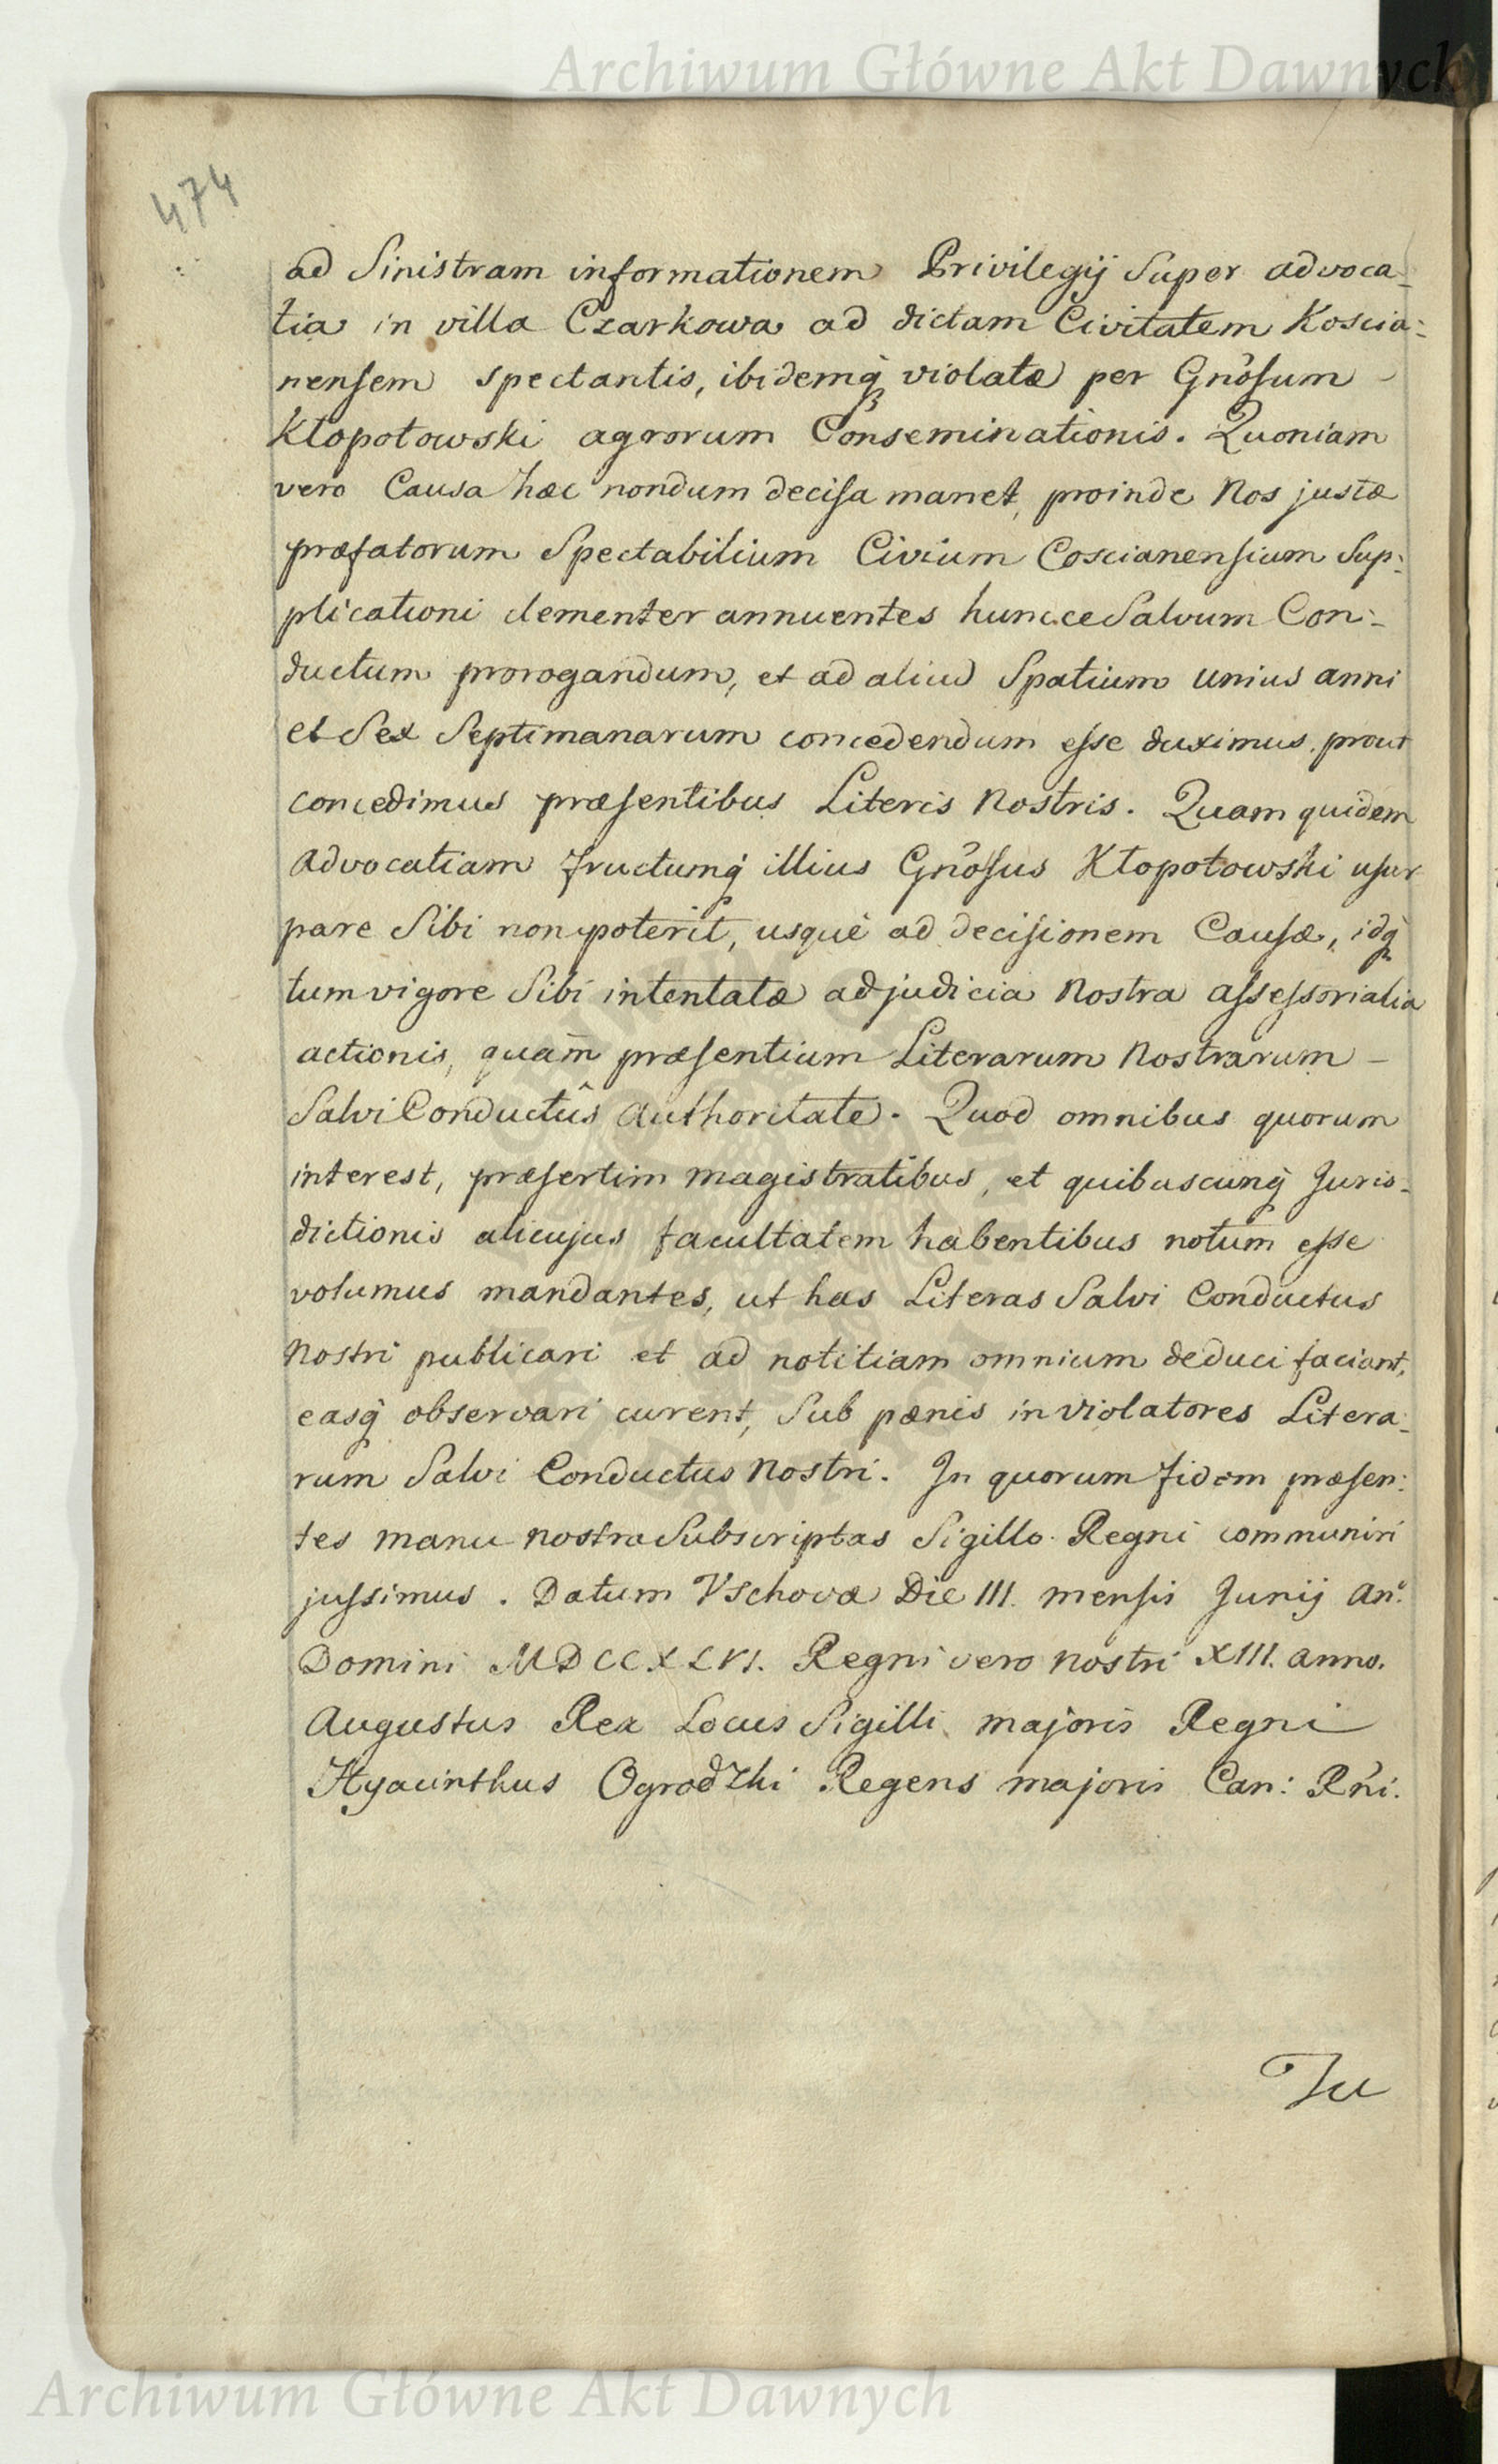 Archiwum Główne Akt Dawnych
474
ad Sinistram informationem Privilegij Super advoca=
tia in villa Czarkowa ad dictam Civitatem Koscia=
nensem spectantis, ibidemq̃ violatæ per Gnõsum -
Kłopotowski agrorum Conseminationis. Quoniam
vero Causa hæc nondum decisa manet, proinde Nos justæ
præfatorum Spectabilium Civium Coscianensium Sup=
plicationi clementer annuentes huncce Salvum Con=
ductum prorogandum, et ad aliud Spatium unius anni
et Sex Septimanarum concedendum esse duximus. prout
concedimus præsentibus Literis Nostris. Quam quidem
Advocatiam fructumq̃ illius Gnõsus Kłopotowski usur
pare Sibi non poterit, usquè ad decisionem Causæ, idq̃
tum vigore Sibi intentatæ ad judicia Nostra assessorialia
actionis, quam præsentium Literarum Nostrarum -
Salvi Conductûs Authoritate. Quod omnibus quorum
interest, præsertim Magistratibus, et quibuscunq̃ Juris=
dictionis alicujus facultatem habentibus notum esse
volumus mandantes, ut has Literas Salvi Conductus
Nostri publicari et ad notitiam omnium deduci faciant,
easq̃ observari curent, Sub pænis in violatores Litera=
rum Salvi Conductus Nostri. In quorum fidem præsen=
tes manu nostra Subscriptas Sigillo Regni communiri
jussimus. Datum Vschovæ Die III. mensis Junij Anº
Domini MDCCXLVI. Regni vero nostri XIII. anno.
Augustus Rex Locus Sigilli majoris Regni
Hyacinthus Ogrodzki Regens majoris Can: Rñi.
Ju
Archiwum Główne Akt Dawnych